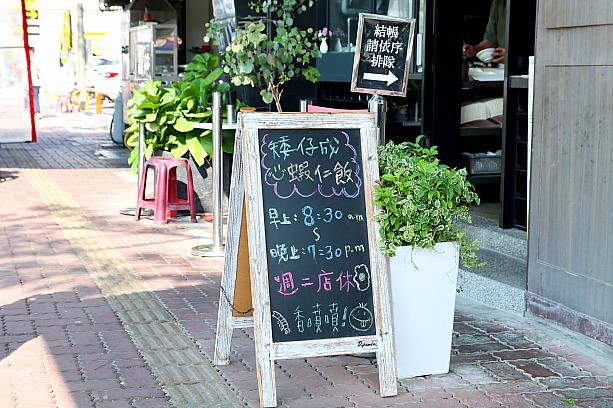 結帳
請依序
排隊
矮仔成
蝦仁飯
早上:8:30am
晚上:7:30p.m
週二店休
香噴噴!